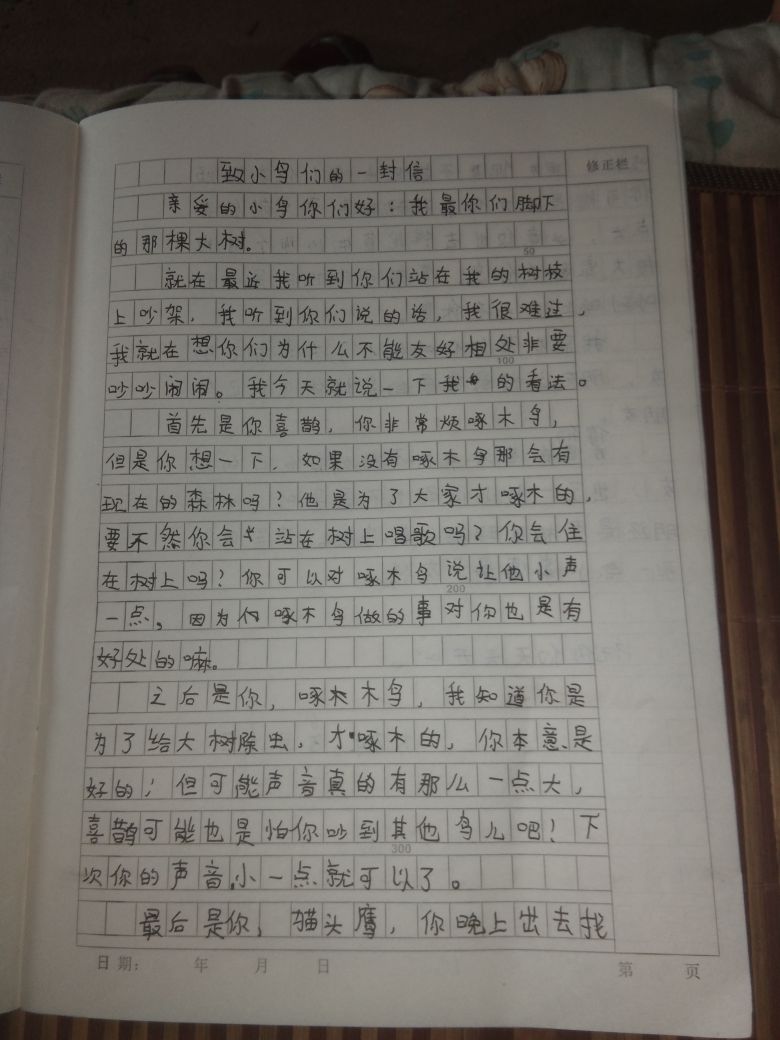 致小鸟们的一封信
修正栏
亲爱的小鸟你们好：我最你们脚下
的那棵大树。
50
就在最近我听到你们站在我的树枝
上吵架，我听到你们说的话，我很难过，
我就在想你们为什么不能友好相处非要
100
吵吵闹闹。我今天就说一下我的看法。
首先是你喜鹊，你非常烦啄木鸟，
但是你想一下，如果没有啄木鸟那会有
现在的森林吗？他是为了大家才啄木的，
要不然你会站在树上唱歌吗？你会住
在树上吗？你可以对啄木鸟说让他小声
200
一点，因为啄木鸟做的事对你也是有
好处的嘛。
之后是你，啄木木鸟，我知道你是
为了给大树除虫，才啄木的，你本意是
好的；但可能声音真的有那么一点大，
喜鹊可能也是怕你吵到其他鸟儿吧！下
300
次你的声音小一点就可以了。
最后是你，猫头鹰，你晚上出去找
日期： 年 月 日
第 页